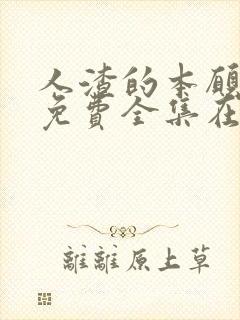 人渣的本愿
免費全集在
離離原上草